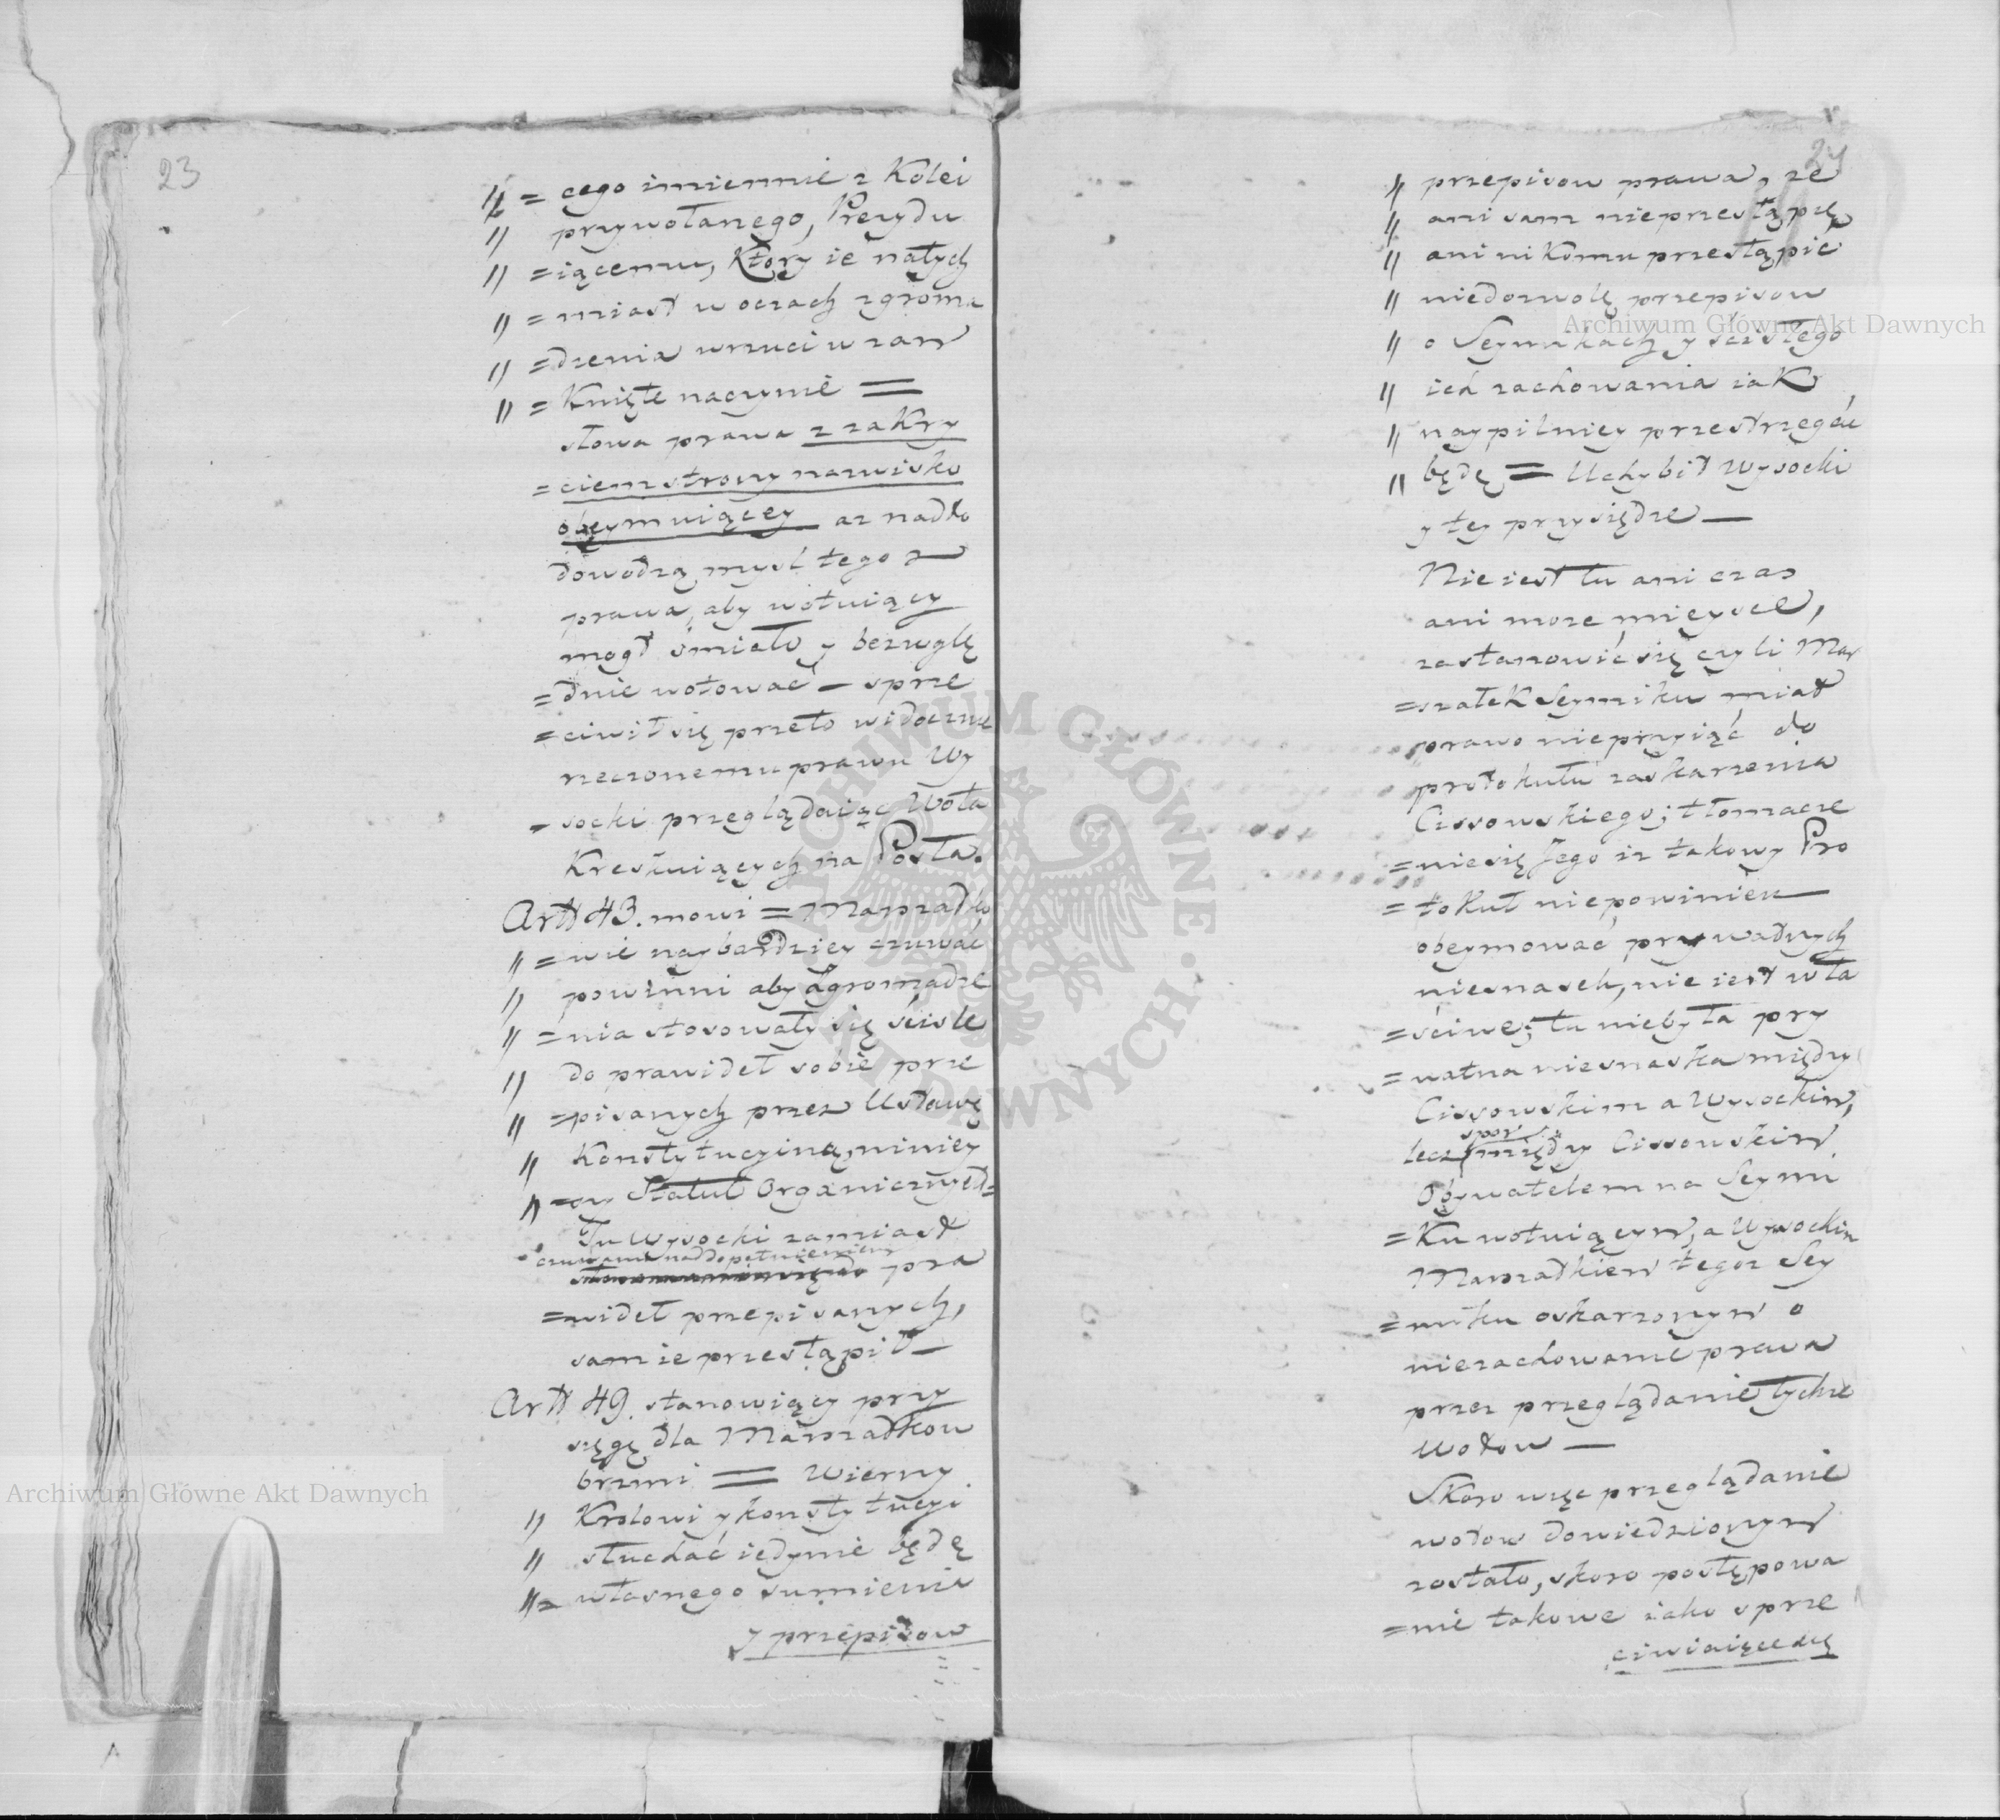 23
" = cego imiennie z Kolei
" przywołanego, Prezydu
" = iącemu, Ktory ie natych
" = miast w oczach zgroma
" = dzenia wrzuci w zam
" = Knięte naczynie =
słowa prawa z zakry
= ciem strony nazwisko
obeymuiącey az nadto
dowodzą mysl tego
prawa, aby wotuiący
mogł smiało y bezwglę
= dnie wotować — sprze
= ciwił się przeto widocznie
rzeczonemu prawu Wy
= socki przeglądaiąc Wota
Kreskuiących na Posła.
Artt 43. mowi = Marszałko
" = wie naybardziey czuwać
" powinni aby Zgromadze
" = nia stosowały się ściśle
" do prawideł sobie prze
" = pisanych przez Ustawę
" Konstytucyiną, niniey
" = szy Statut Organiczny =
Tu Wysocki zamiast
czuwania nad dopełnieniem
pra
= wideł przepisanych,
sam ie przestąpił —
Artt 49. stanowiący przy
sięgę dla Marszałkow
brzmi = Wierny
" Krolowi y konstytucyi
" słuchać iedynie będę
" = własnego sumienia
y przepisow
24
" przepisow prawa, ze
" ani sam nieprzestąpię
" ani nikomu przestąpić
" niedozwolę przepisow
" o Seymikach y scisłego
" ich zachowania iak
" naypilniey przestrzegać
" będę = Uchybił Wysocki
y tey przysiędze —
Nie iest tu ani czas
ani moze mieysce,
zastanowić się czyli Mar
= szałek Seymiku miał
prawo nieprzyiąć do
protokułu zaskarzenia
Cissowskiego; tłomacze
= nie się Jego iz takowy Pro
= tokuł niepowinien
obeymować prywatnych
niesnasek, nie iest wła
= ściwe; tu niebyła pry
= watna niesnaska między
Cissowskim a Wysockim,
spor
lecz między Cissowskim
Obywatelem na Seymi
= Ku wotuiącym, a Wysockim
Marszałkiem tegoz Sey
= miku oskarzonym o
niezachowanie prawa
przez przeglądanie tychze
Wotow —
Skoro więc przeglądanie
wotow dowiedzionym
zostało, skoro postępowa
= nie takowe iako sprze
ciwiaiące się
Archiwum Główne Akt Dawnych
Archiwum Główne Akt Dawnych
ARCHIWUM GŁÓWNE AKT DAWNYCH